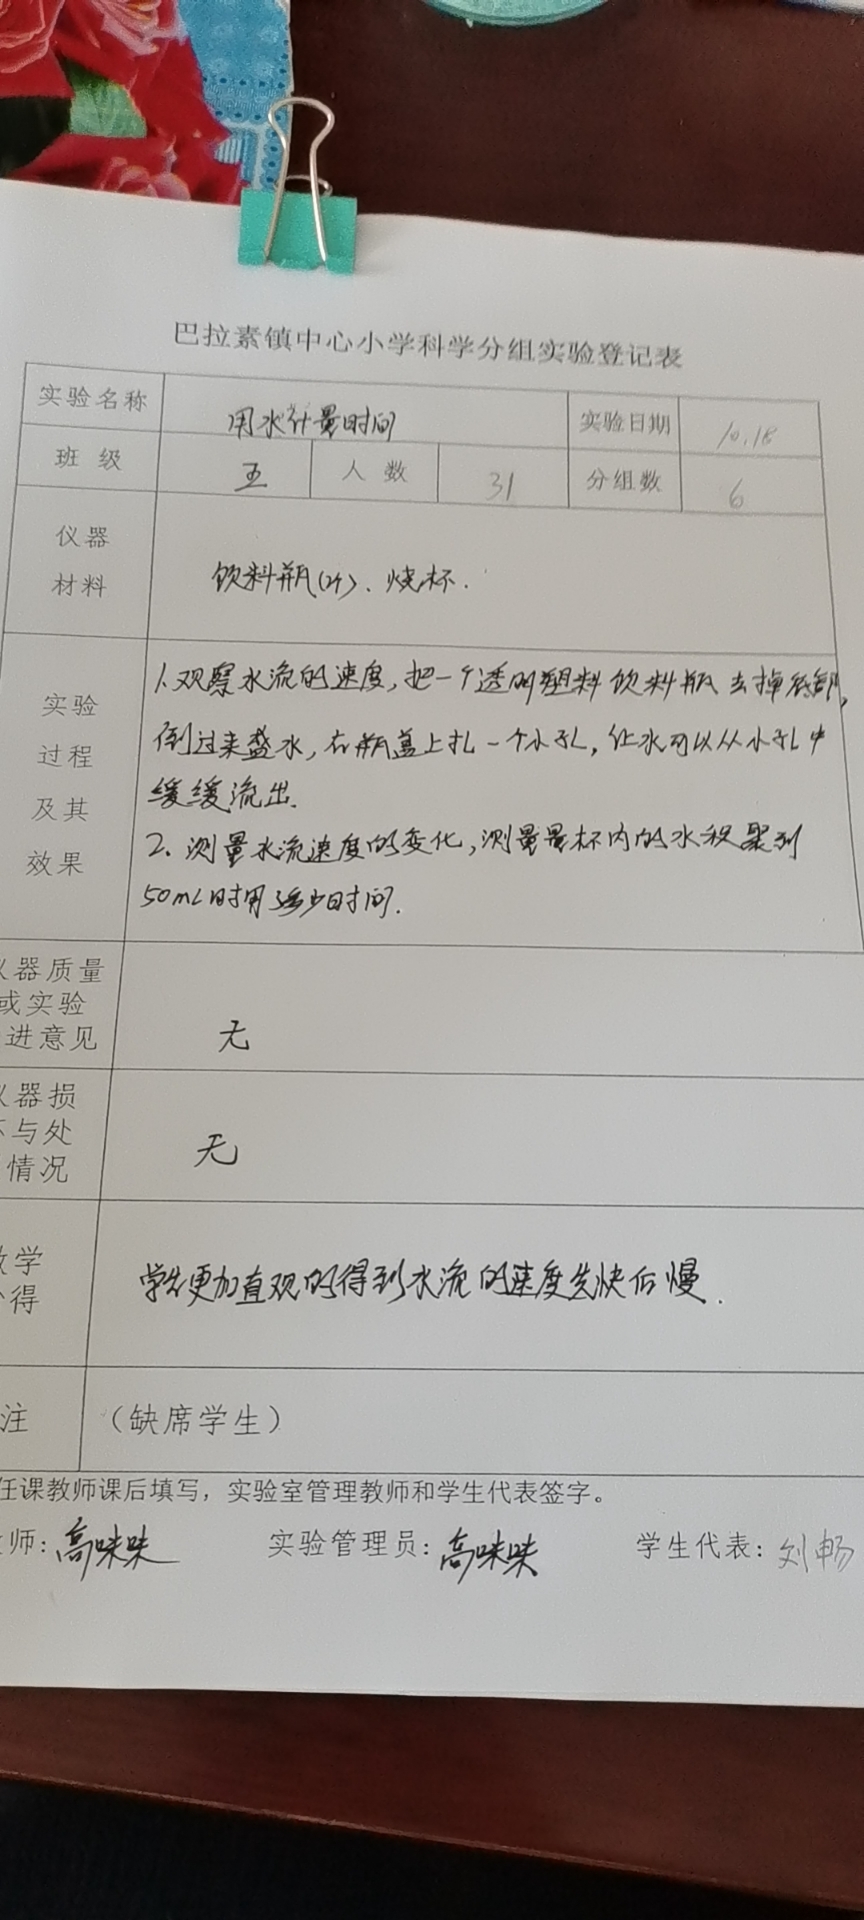 巴拉素镇中心小学科学分组实验登记表
实验名称 用水计量时间 实验日期 10.18
班级 五 人数 31 分组数 6
仪器
材料
饮料瓶(2个)、烧杯.
实验
过程
及其
效果
1.观察水流的速度,把一个透明塑料饮料瓶去掉底部,
倒过来盛水,在瓶盖上扎一个小孔,让水可以从小孔中
缓缓流出.
2.测量水流速度的变化,测量量杯内的水积聚到
50mL时用多少时间.
仪器质量
或实验
进意见
无
仪器损
坏与处
情况
无
教学
心得
学生更加直观的得到水流的速度先快后慢.
注 (缺席学生)
任课教师课后填写，实验室管理教师和学生代表签字。
师：高味味 实验管理员：高味味 学生代表：刘畅